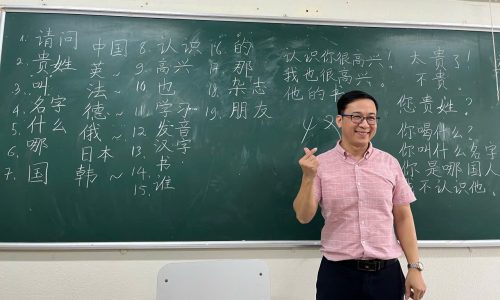 1. 请问
2. 贵姓
3. 叫
4. 名字
5. 什么
6. 哪
7. 国
中国
英 ~
法 ~
德 ~
俄 ~
日本
韩 ~
8. 认识
9. 高兴
10. 也
11. 学习
12. 发音
13. 汉字
14. 书
15. 谁
16. 的
17. 那
18. 杂志
19. 朋友
认识你很高兴！
我也很高兴。
他的书
太贵了！
不贵。
您贵姓？
你喝什么？
你叫什么名字
你是哪国人
不认识他